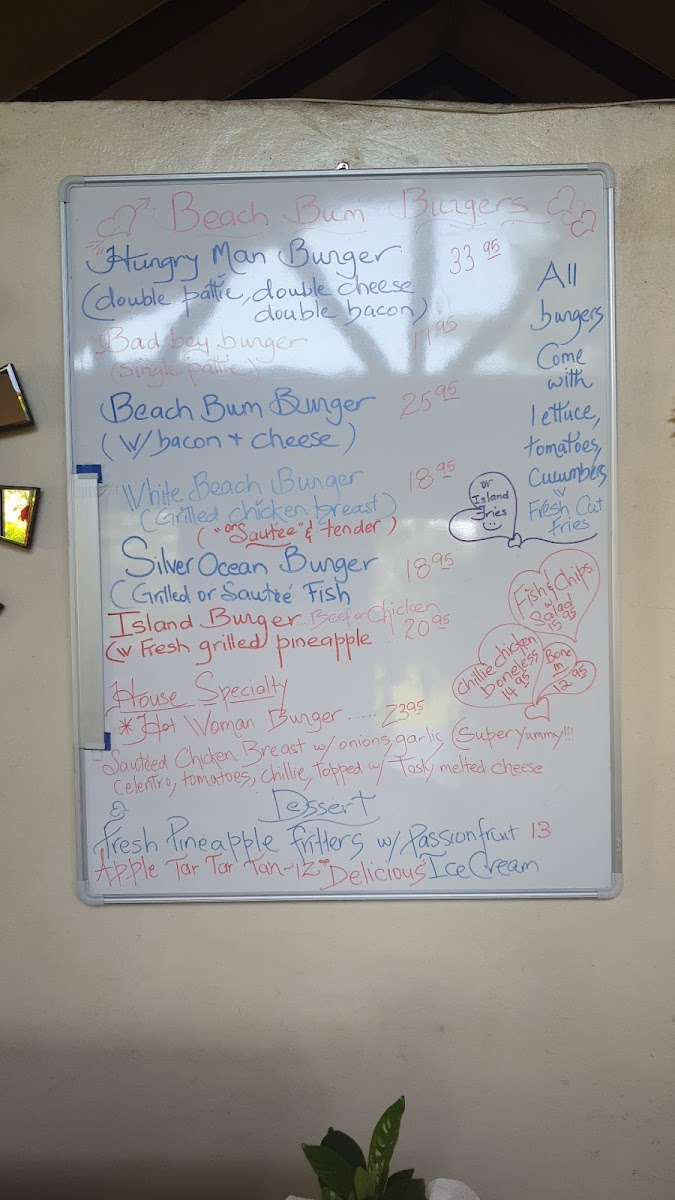 Beach Bum Burgers
Hungry Man Burger 33 95
(double pattie, double cheese
double bacon)
Bad boy burger 17 95
(single pattie)
Beach Bum Burger 25 95
(w/ bacon + cheese)
White Beach Burger 18 95
(Grilled chicken breast)
("or Sautee" & tender)
Silver Ocean Burger 18 95
(Grilled or Sauteé Fish
Island Burger Beef or Chicken
(w Fresh grilled pineapple 20 95
House Specialty
*Hot Woman Burger ..... 23 95
Sautéed Chicken Breast w/ onions, garlic (Super yummy!!!
Celentro, tomatoes, chillie, Topped w/ Tasty melted cheese
Dessert
Fresh Pineapple Fritters w/ Passionfruit 13
&
Apple Tar Tar Tan-12 Delicious Ice Cream
All
burgers
Come
with
lettuce,
tomatoes,
Cucumbers
w
Fresh Cut
Fries
or
Island
Fries
Fish & Chips
w/
Salad
15 95
Chillie chicken
boneless
14 95
Bone
in
12 95